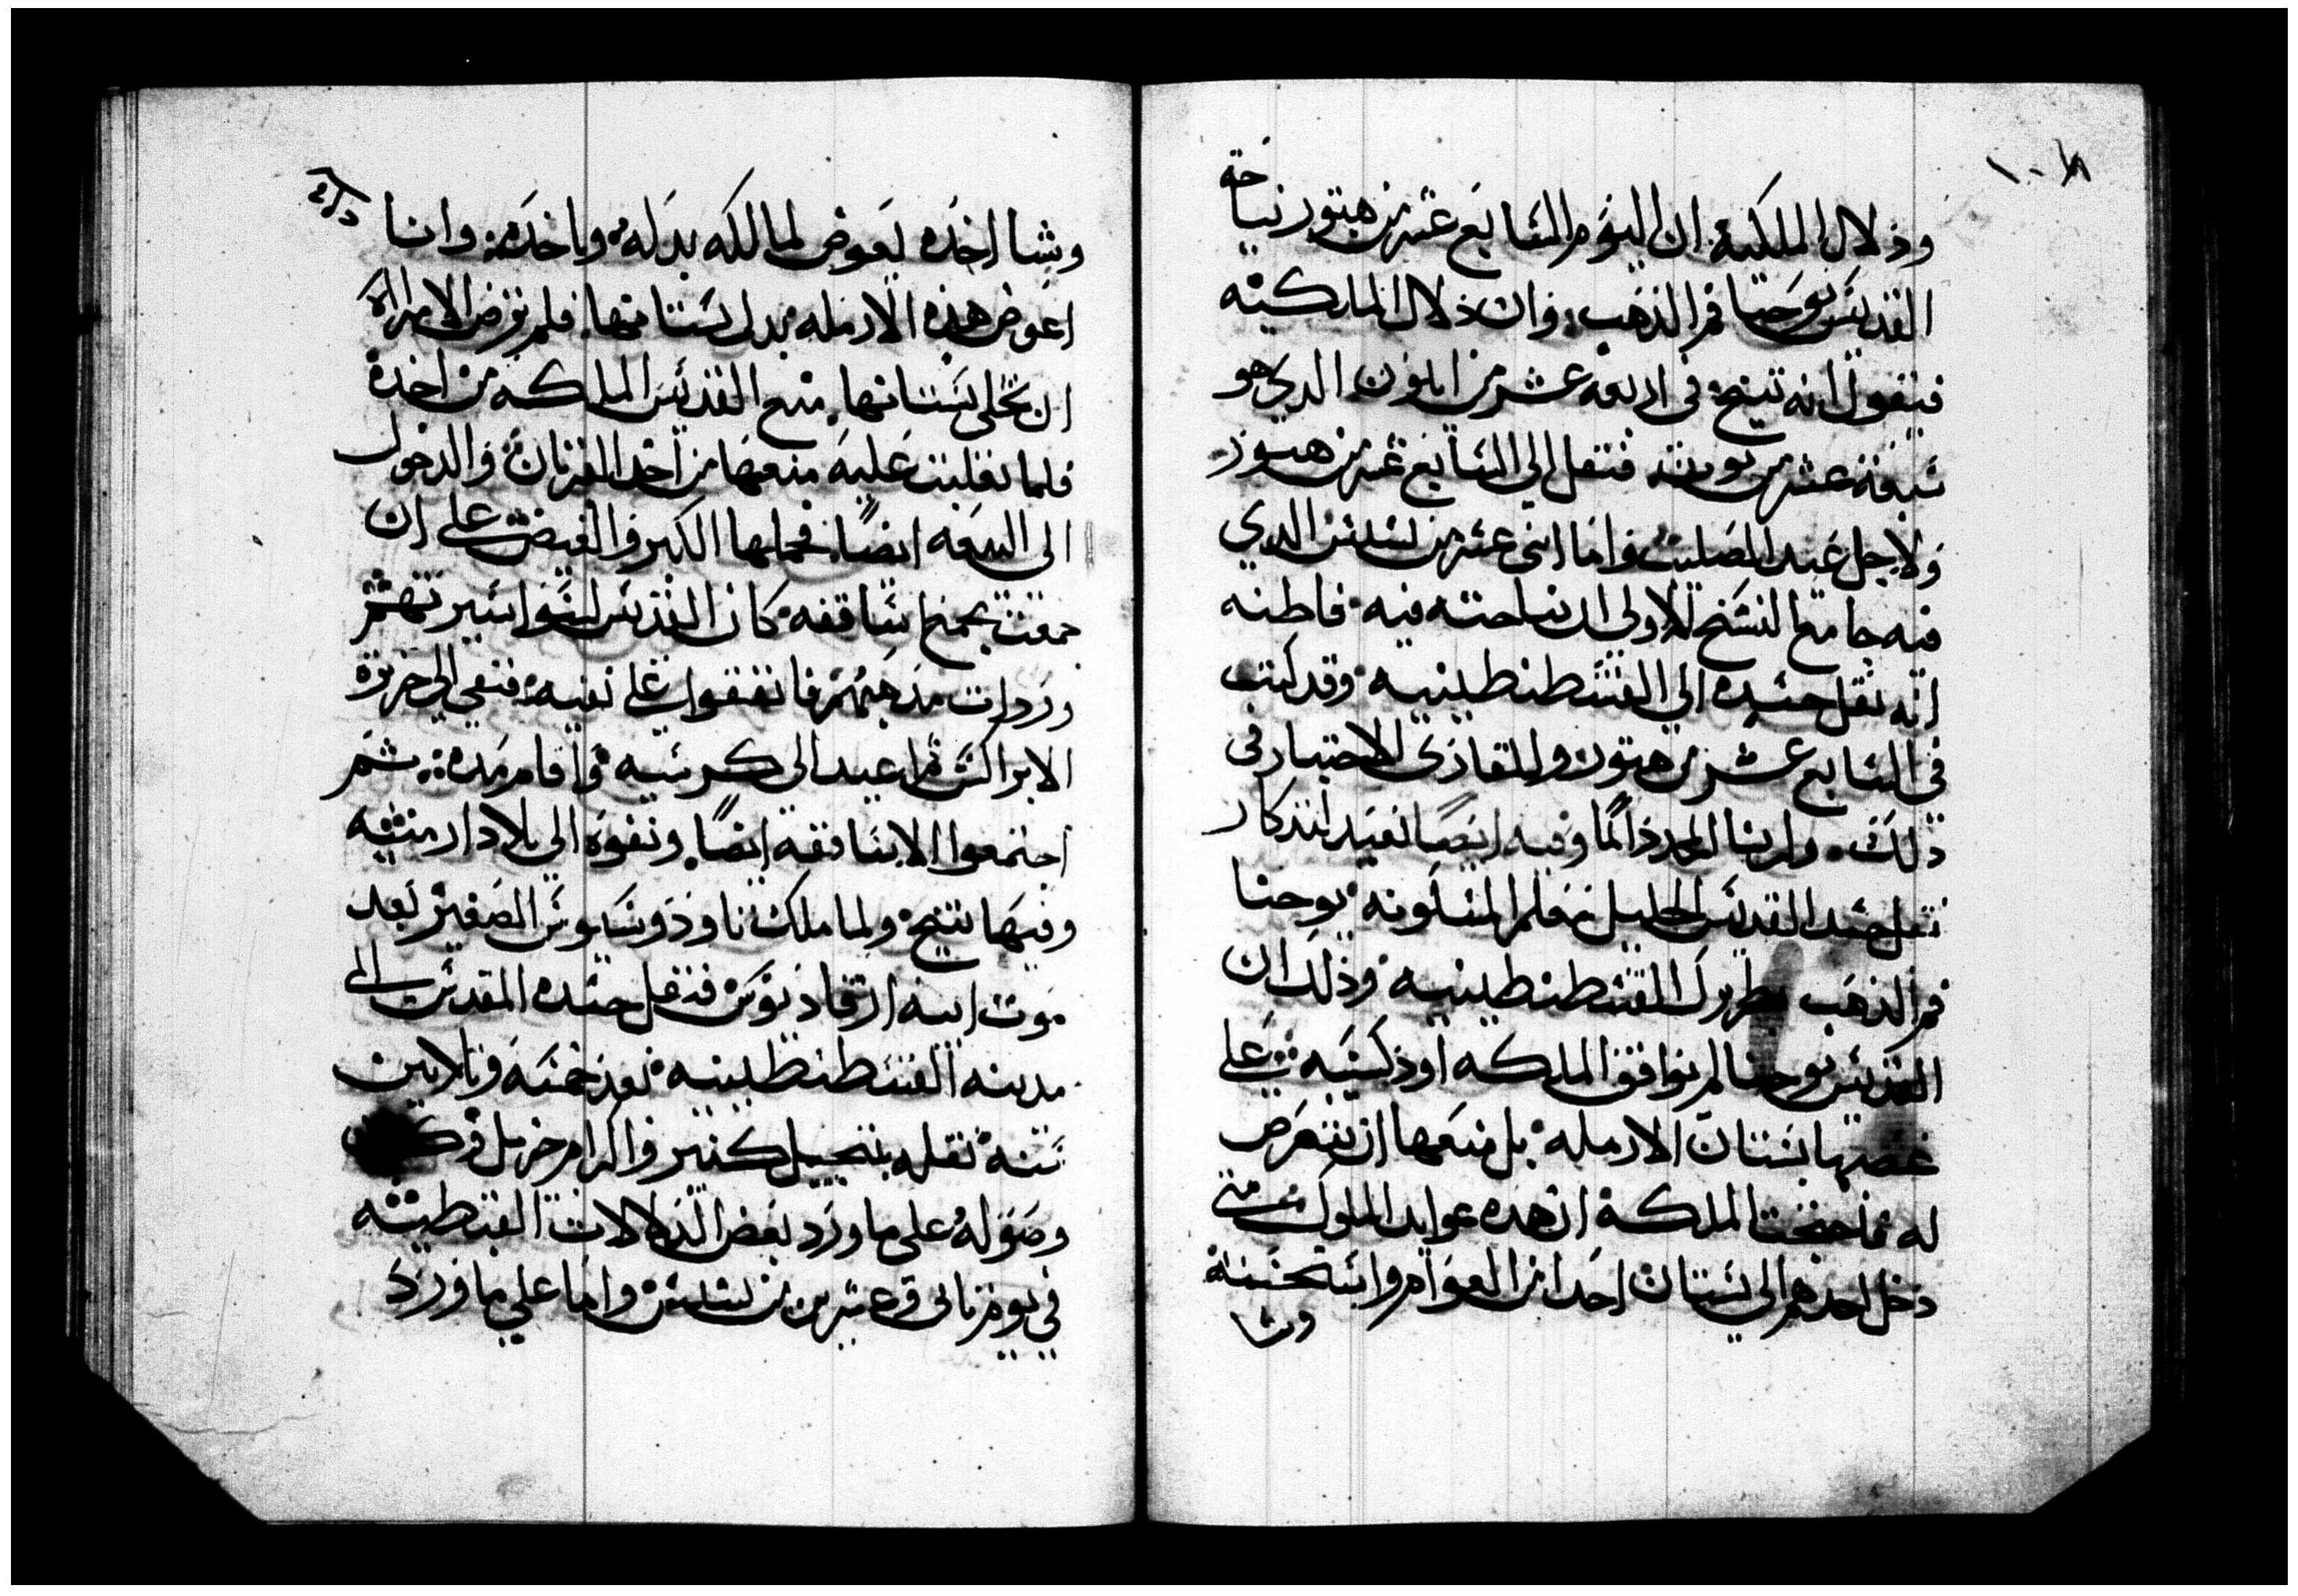 وذلال الملكية ان اليوم السابع عشر من هتور نياحة
القديس يوحنا فم الذهب وان ذلال الملكيه
فيقول انه تنيح في اربعه عشر من ايلون الذي هو
سبعة عشر من توت فنقل الي السابع عشر من هتور
ولاجل عيد الصليب واما اثنى عشر من بشنس الدي
فيه جامع النسخ الاولى ان نياحته فيه فاطنه
انه نقل جسده الي القسطنطينيه وقد كتب
في السابع عشر من هتور وللقارى الاختيار فى
دلك ولربنا المجد دايمًا وفيه ايضًا نعيد لتذكار
نقل جسد القديس الجليل
يوحنا
فم الذهب بطريرك القسطنطينيه وذلك ان
القديس يوحنا لم يوافق الملكه اوذكسيه على
غصبها بستان الارمله بل منعها ان تتعرض
له فاحتجت الملكة ان هده عوايد الملوك متى
دخل احدهم الي بستان احدا من العوام واستحسنه
وشا
وشا اخده يعوض لمالكه بدله وياخده وانا
اعوض هذه الارمله بدل بستانها فلم ترض الامراة
ان تخلى بستانها منع القديس الملكه من اخده
فلما تقلبت عليه منعها من اخد القربان والدخول
الى البيعه ايضًا فحملها الكبر والغيض على ان
جمعت مجمع اساقفه كان القديس
ورذلت مذهبهم فاتفقوا على نفيه فنفي الي جزيرة
الابراكس ثم اعيد الى كرسيه واقام مده ثم
اجتمعوا الاساقفه ايضًا ونفوه الي بلاد ارمنيه
وفيها تنيح ولما ملك تاودوسيوس الصغير بعد
موت ابيه ارقاديوس فنقل جسده المقدس الى
مدينه القسطنطينيه بعد خمسه وثلاتين
سنة نقله بتبجيل كثير واكرام جزيل
وصوله على ما ورد بعض الذلالات القبطيه
في يوم ثانى وعشرين من بشنس واما على ما ورد